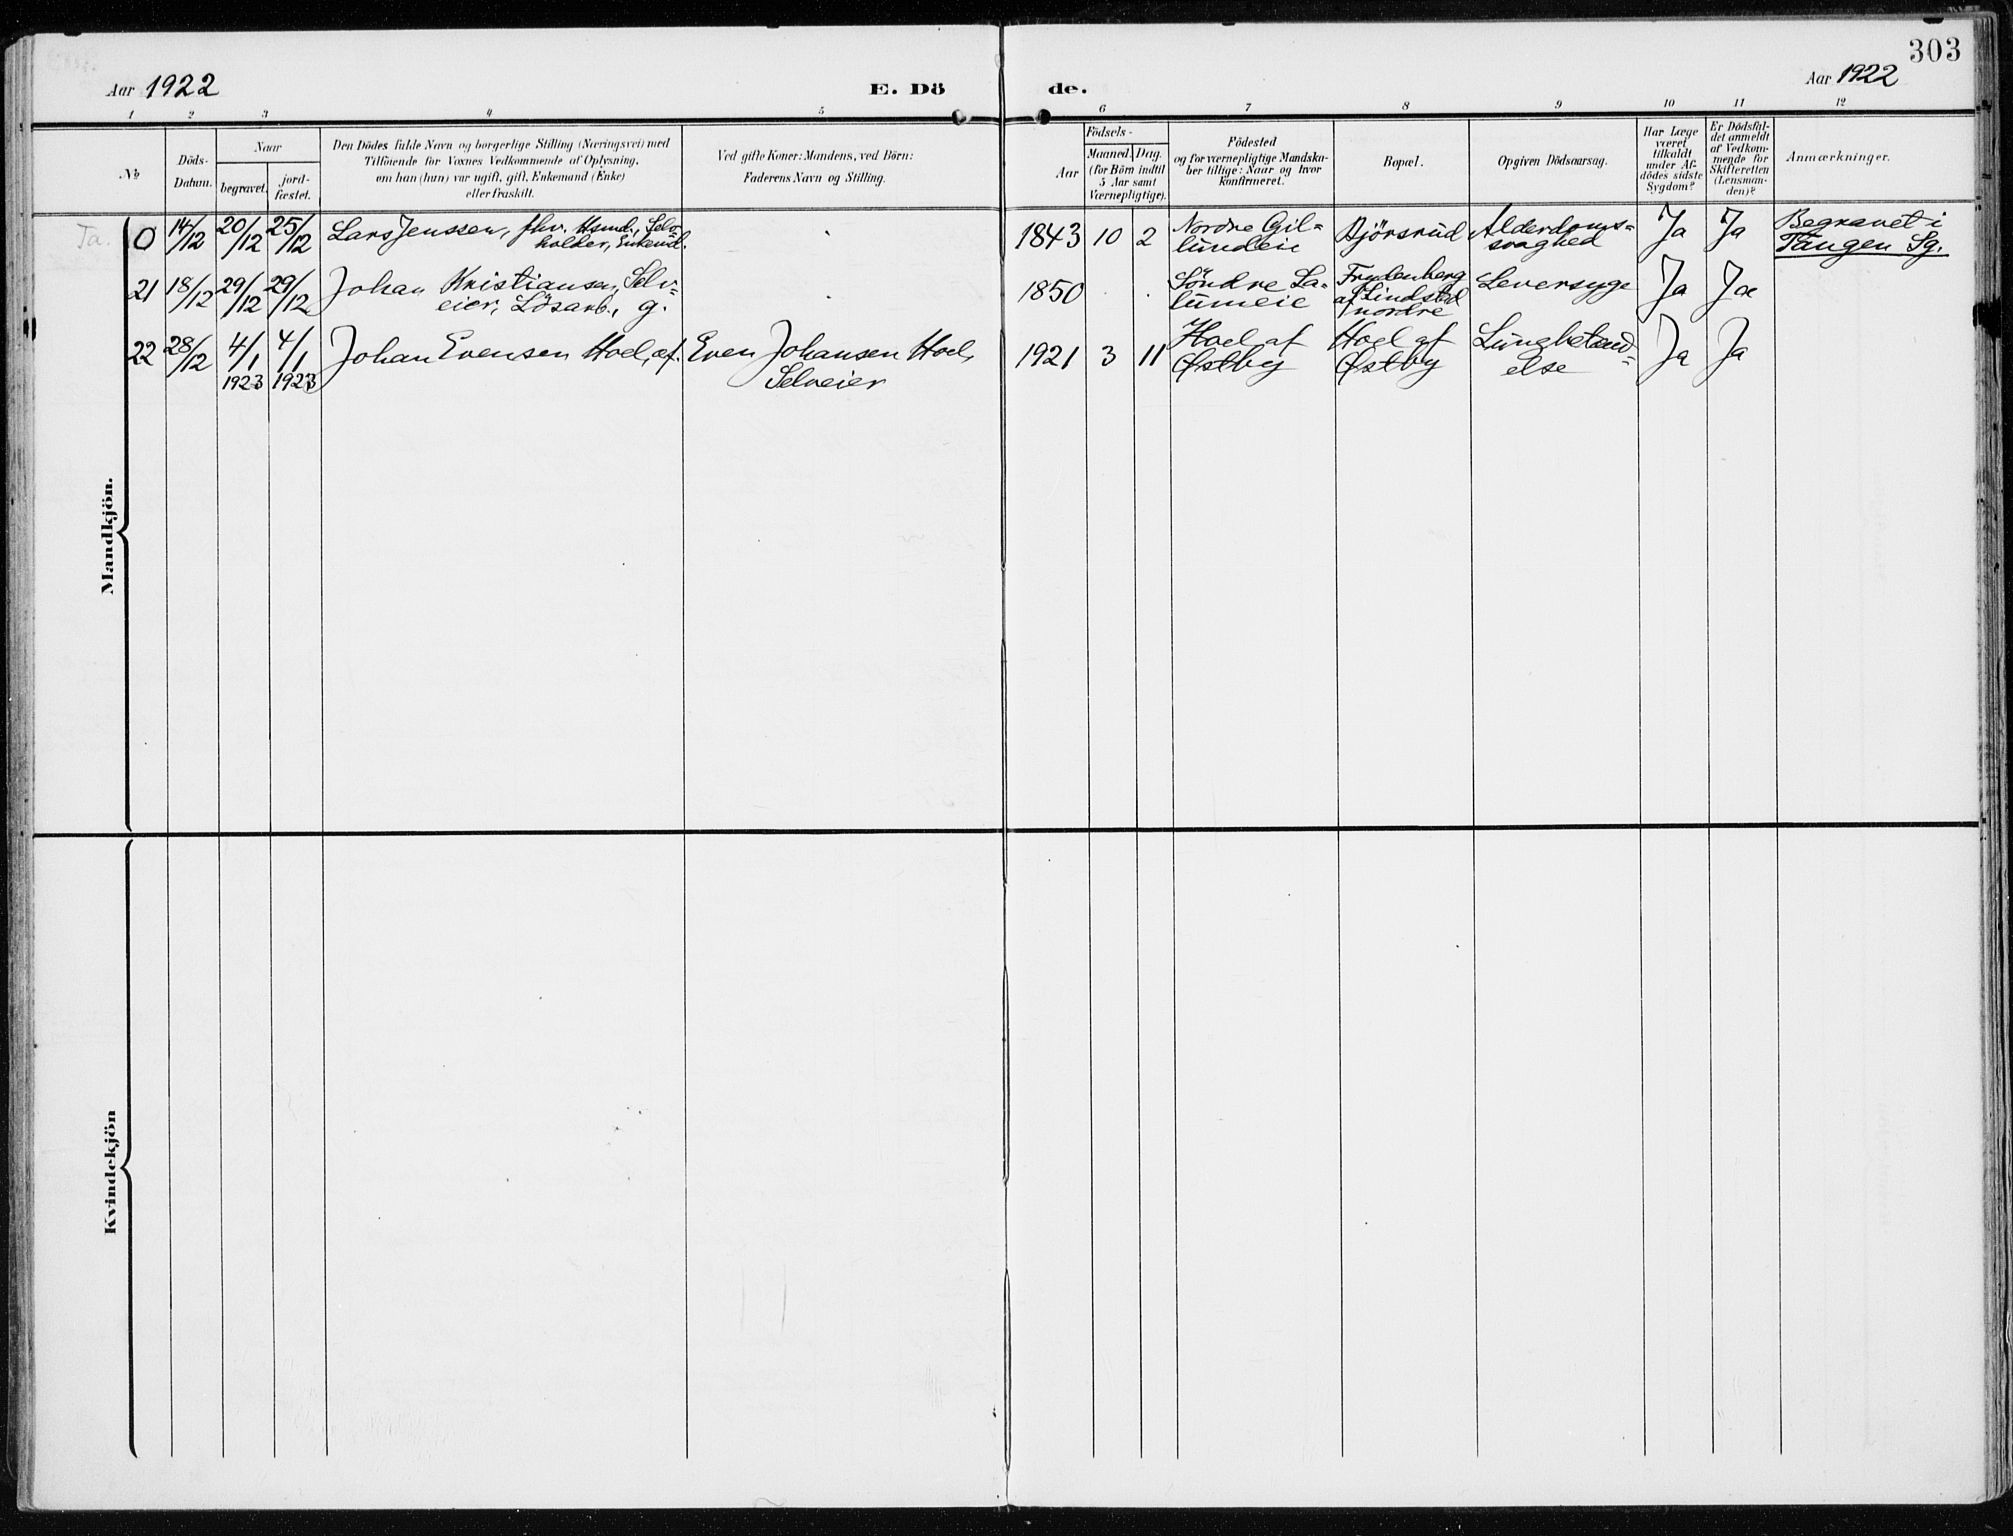 303
Aar 1922
E. Dö
de.
Aar 1922
1 2 3 4 5 6 7 8 9 10 11 12
№
Döds-
Datum.
Naar
begravet.
jord-
fæstet.
Den Dödes fulde Navn og borgerlige Stilling (Næringsvei) med
Tilföiende for Voxnes Vedkommende af Oplysning,
om han (hun) var ugift, gift, Enkemand (Enke)
eller fraskilt.
Ved gifte Koner: Mandens, ved Börn:
Faderens Navn og Stilling.
Aar
Födsels-
Maaned. Dag.
(for Börn indtil
5 Aar samt
Værnepligtige).
Födested
og for værnepligtige Mandska-
ber tillige: Naar og hvor
konfirmeret.
Bopæl.
Opgiven Dödsaarsag.
Har Læge
været
tilkaldt
under Af-
dödes sidste
Sygdom?
Er Dödsfal-
det anmeldt
af Vedkom-
mende for
Skifteretten
(Lensman-
den)?
Anmærkninger.
Mandkjön.
Ta.
0 14/12 20/12 25/12 Lars Jenssen, fhv. Hsmd., Selv-
holder, Enkemd.
1843 10 2
Nordre Gil-
lundeie
Bjørsrud
Alderdoms-
svaghed
Ja Ja
Begravet i
Tangen Sg.
21 18/12 29/12 29/12 Johan Kristiansen, Selv-
eier, Lösarb., g.
1850 . .
Söndre Sa-
lumeie
Frydenberg
af Lindstad
nordre
Leversyge
Ja Ja
22 28/12 4/1 1923 4/1 1923 Johan Evensen Hoel, af.
Even Johansen Hoel,
Selveier
1921 3 11
Hoel af
Østby
Hoel af
Østby
Lungbetænd-
else
Ja Ja
Kvindekjön